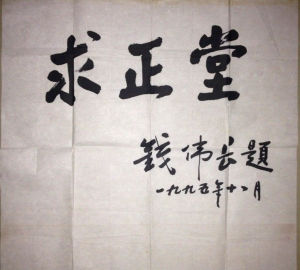 求正堂
錢伟長題
一九九五年十二月